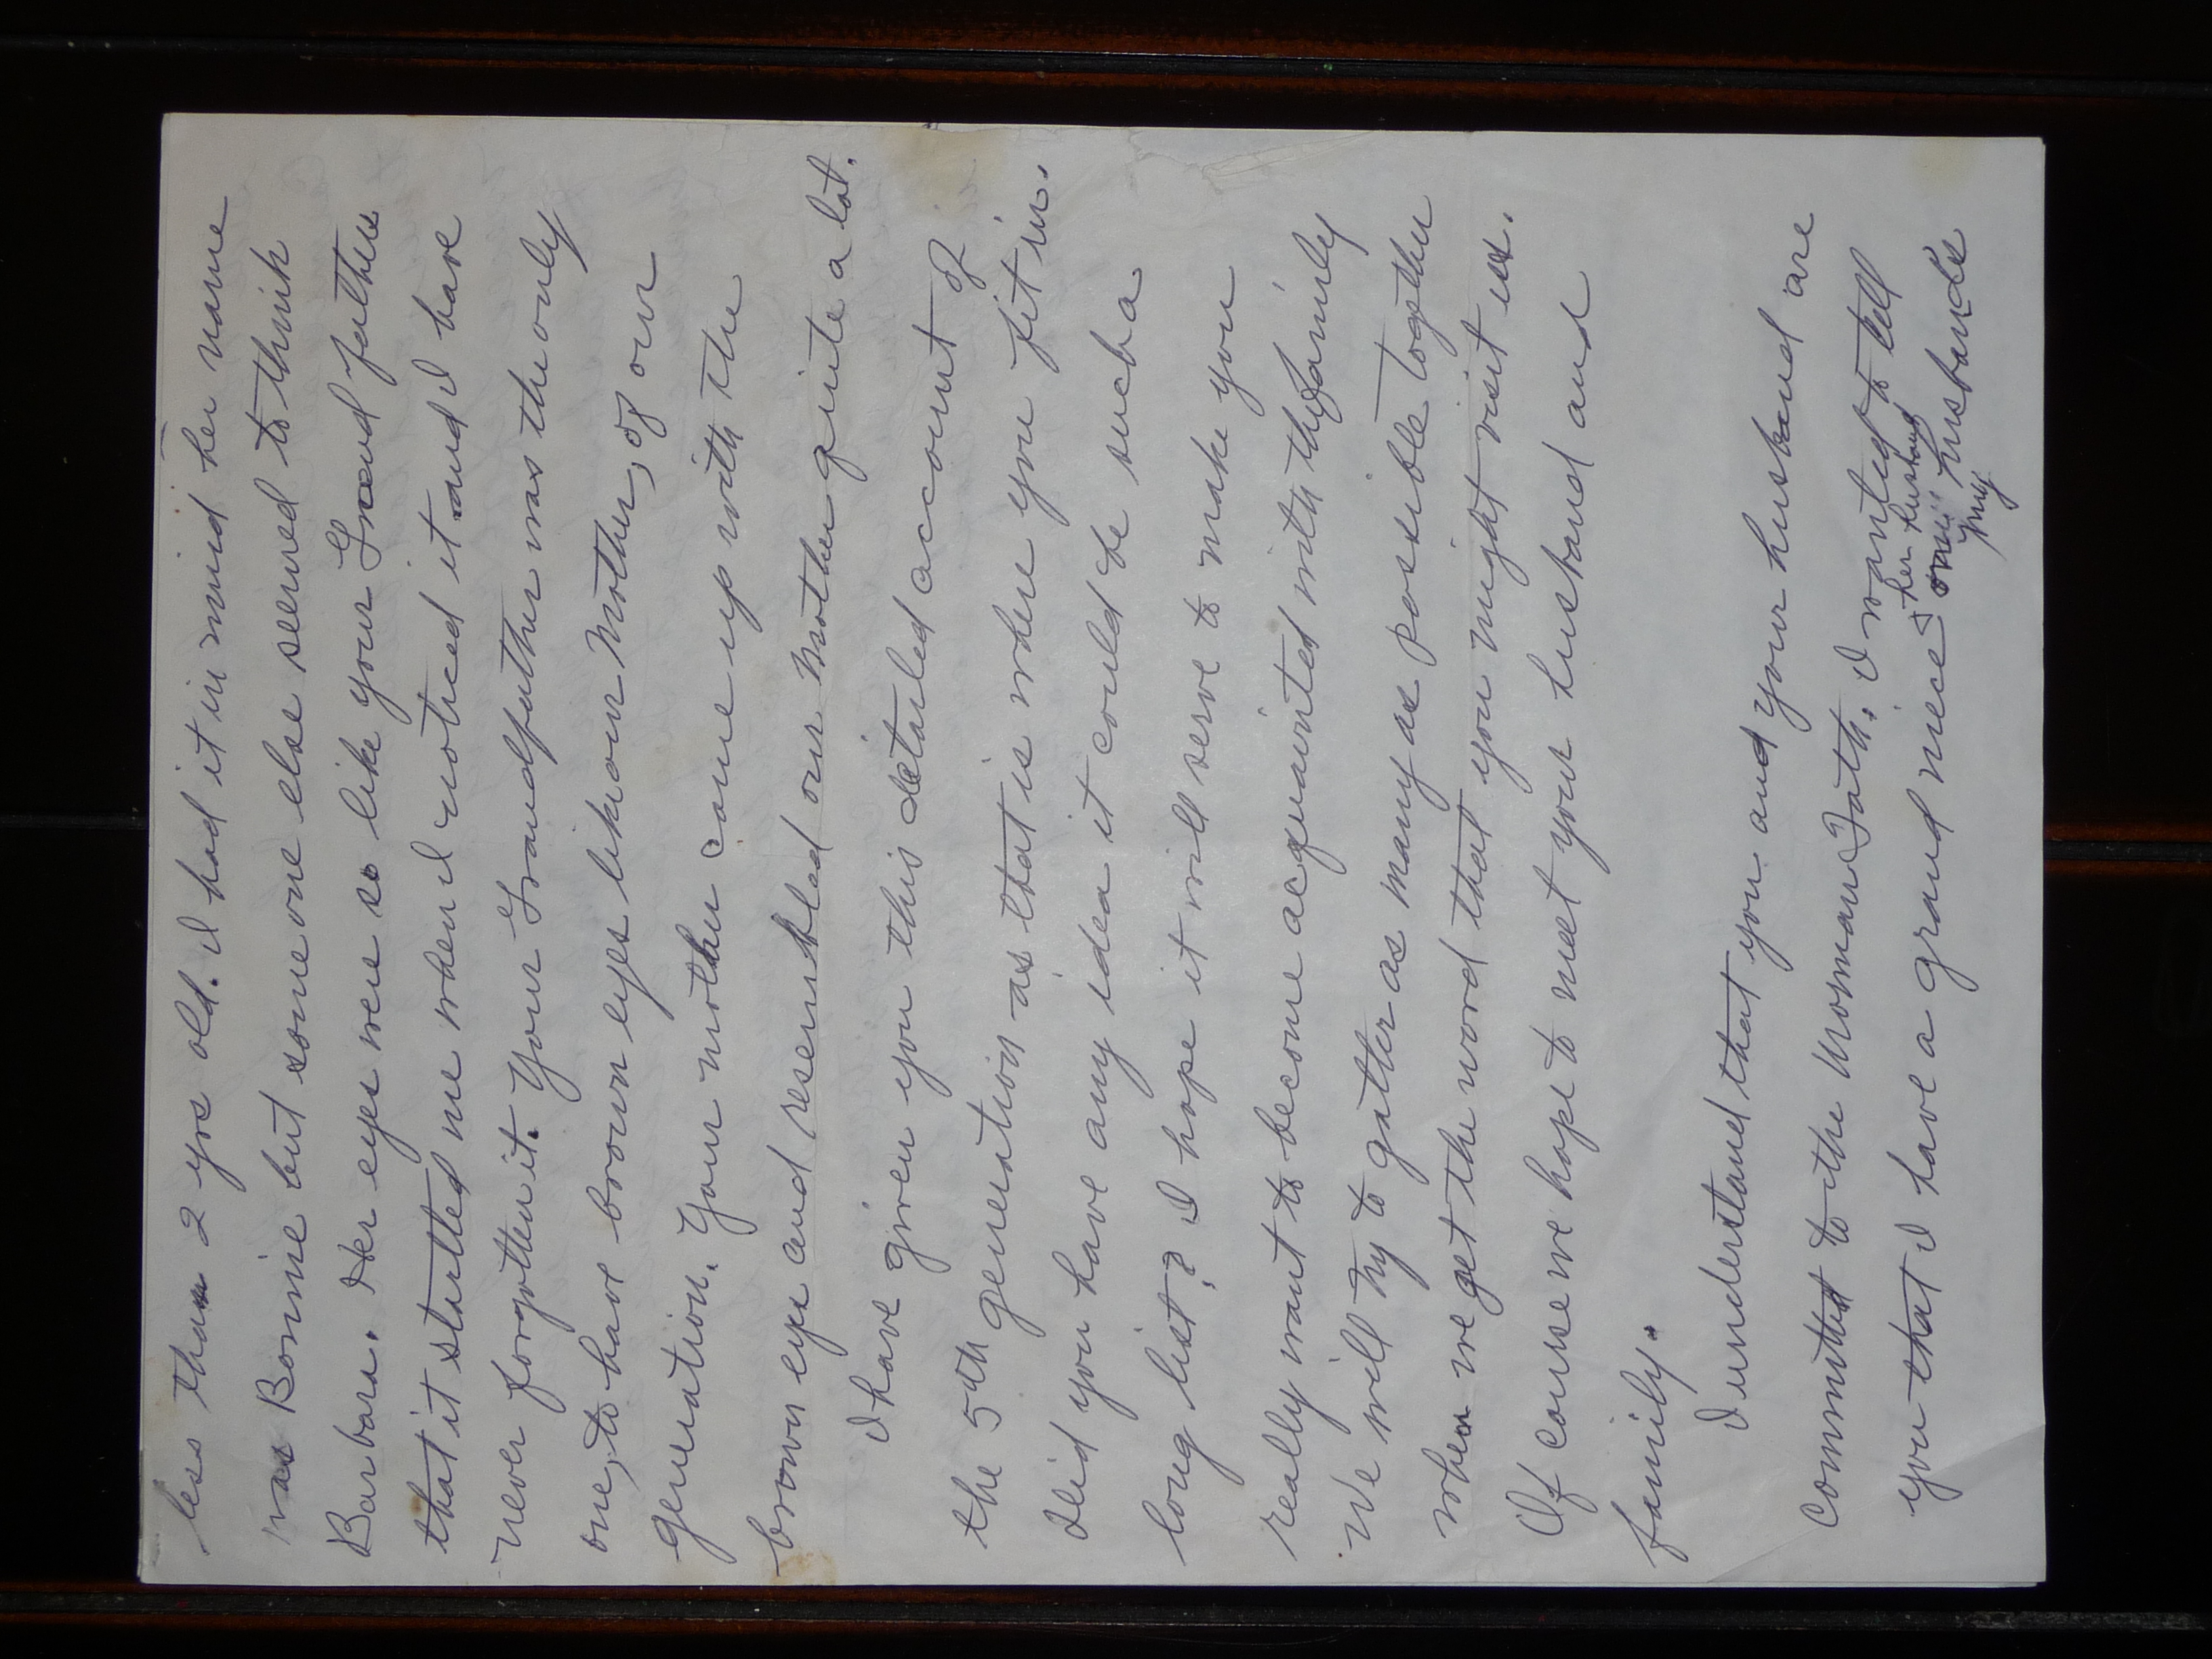 less than 2 yrs old. I had it in mind her name
was Bonnie but some one else seemed to think
Barbara. Her eyes were so like your Grand fathers
that it startled me when I noticed it and I have
never forgotten it. Your Grandfather was the only
one, to have brown eyes like our Mother, of our
generation. Your mother came up with the
brown eyes and resembled our Mother quite a lot.
I have given you this detailed account of
the 5th generation as that is where you fit in.
Did you have any idea it could be such a
long list? I hope it will serve to make you
really want to become acquainted with the family
We will try to gather as many as possible together
when we get the word that you might visit us.
Of course we hope to meet your husband and
family.
I understand that you and your husband are
committed to the Morman Faith. I wanted to tell
her husband
you that I have a grand niece &
my husbands